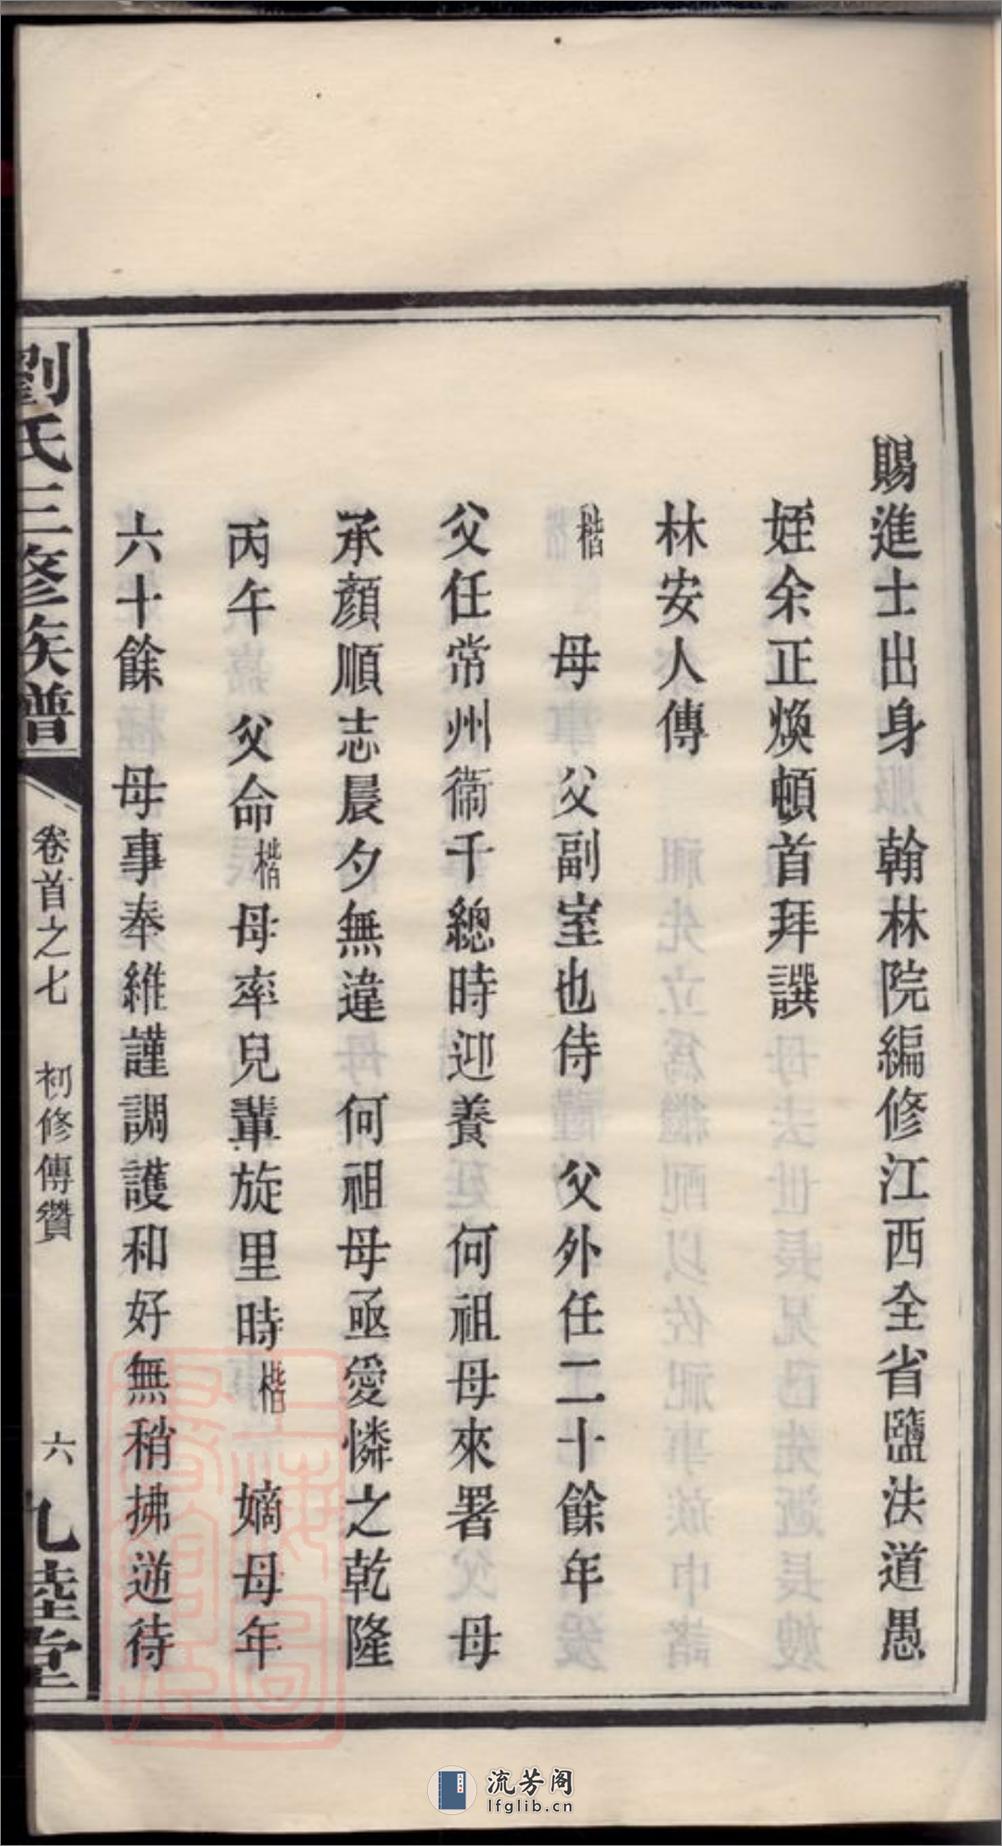 賜進士出身　翰林院編修江西全省鹽法道愚
姪余正煥頓首拜譔
林安人傳
楷　母　父副室也侍　父外任二十餘年
父任常州衞千總時迎養　何祖母來署　母
承顏順志晨夕無違　何祖母亟愛憐之乾隆
丙午　父命楷母率兒輩旋里時楷　嫡母年
六十餘　母事奉維謹調護和好無稍拂逆待
劉氏三修族譜
卷首之七　初修傳贊
六
九陸堂
流芳阁
lfglib.cn